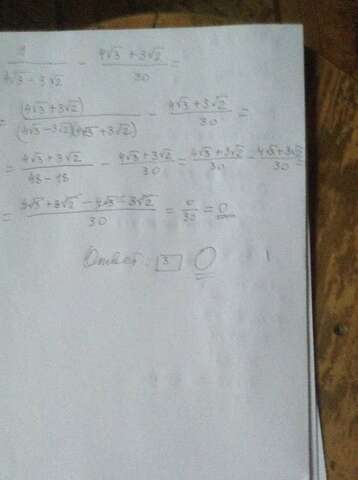 1/(4√3 - 3√2) - (4√3 + 3√2)/30 =
= (4√3 + 3√2)/((4√3 - 3√2)(4√3 + 3√2)) - (4√3 + 3√2)/30 =
= (4√3 + 3√2)/(48 - 18) - (4√3 + 3√2)/30 = (4√3 + 3√2)/30 - (4√3 + 3√2)/30 =
= (4√3 + 3√2 - 4√3 - 3√2)/30 = 0/30 = 0
Ответ: 0